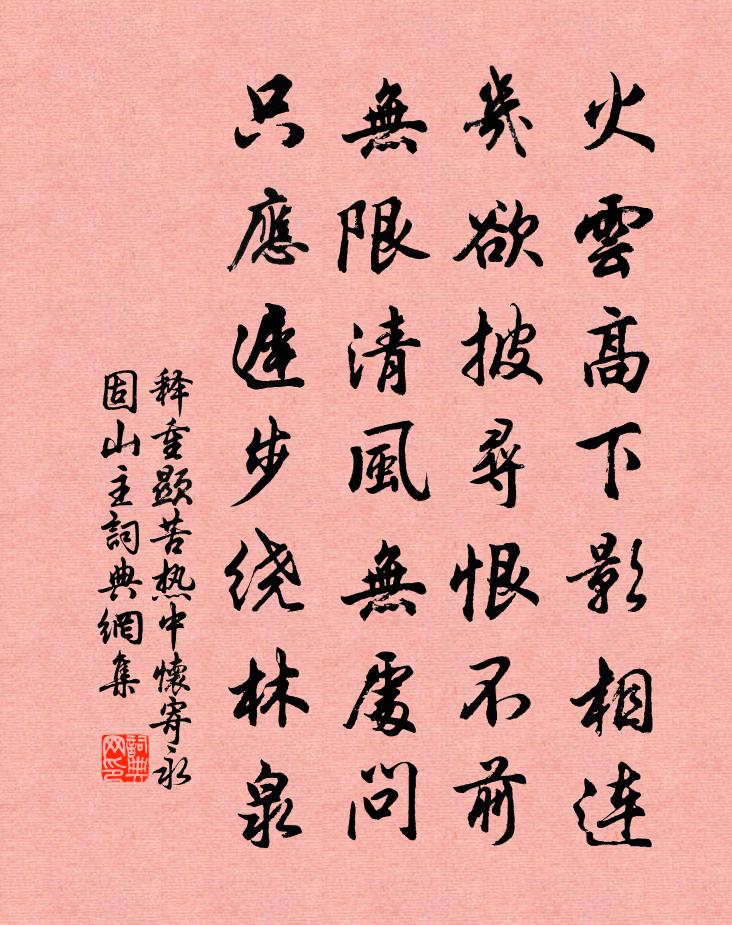 火雲高下影相連
幾欲披尋恨不前
無限清風無處問
只應遲步绕林泉
释重顯苦热中懷寄永
固山主詞典網集
詞典网印